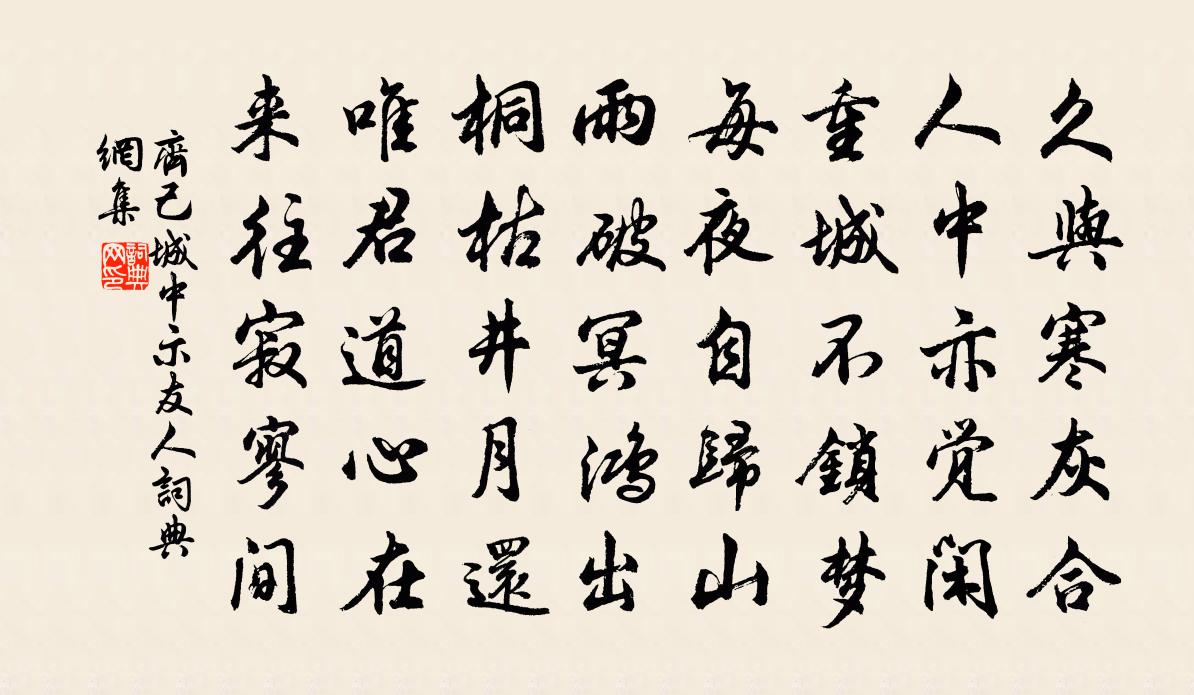 久與寒灰合
人中亦觉闲
重城不鎖梦
每夜自歸山
雨破冥鴻出
桐枯井月還
唯君道心在
来往寂寥间
齊己城中示友人詞典
網集
詞典
网印